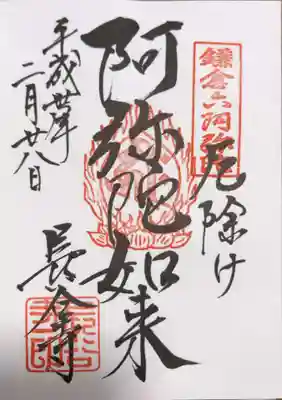 鎌倉六阿弥陀
厄除け
阿弥陀如来
長谷寺
平成年
二月廿八日